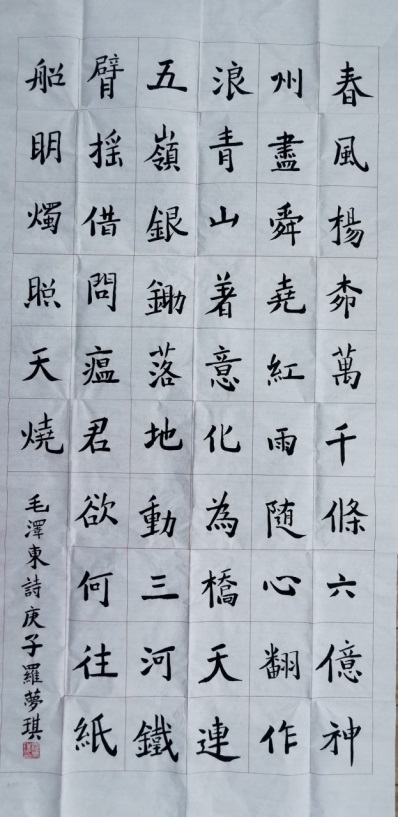 春風楊柳萬千條六億神
州盡舜堯紅雨随心翻作
浪青山著意化為橋天連
五嶺銀鋤落地動三河鐵
臂摇借問瘟君欲何往紙
船明燭照天燒
毛澤東詩庚子羅夢琪